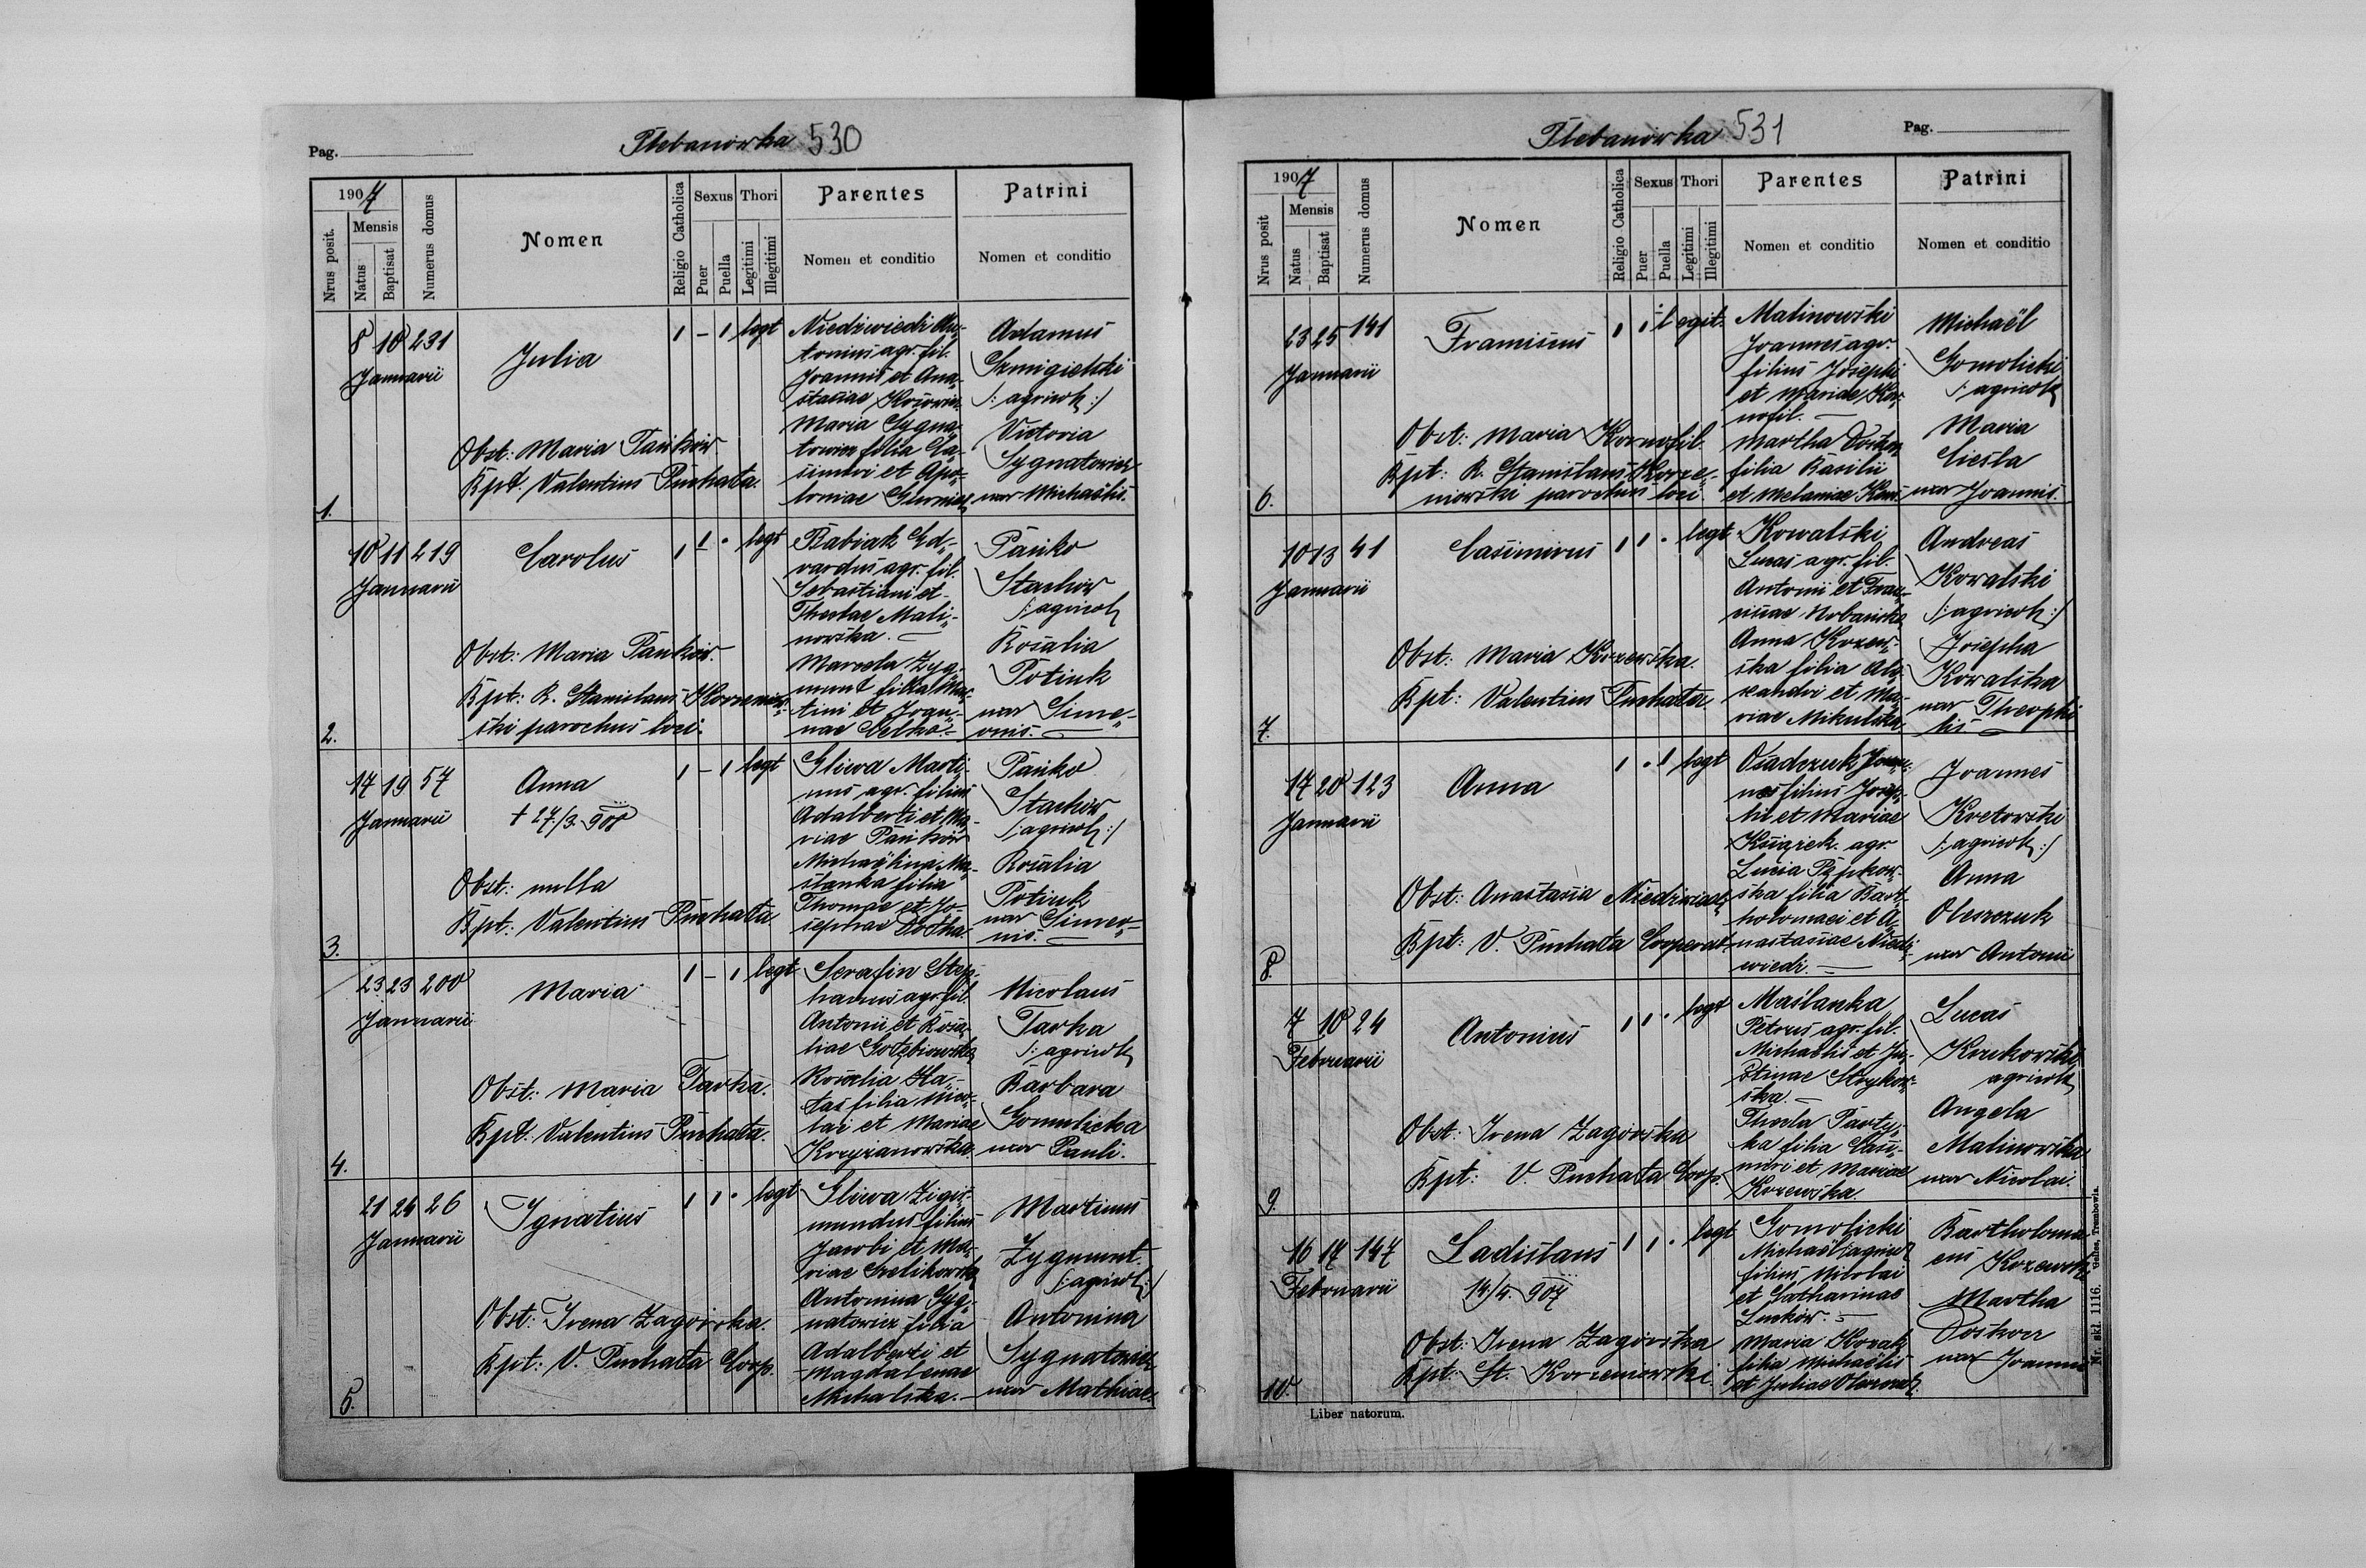 Pag.
Plebanówka 530
1907
Nrus posit.
Mensis
Natus
Baptisat
Numerus domus
Nomen
Religio Catholica
Sexus
Puer
Puella
Thori
Legitimi
Illegitimi
Parentes
Nomen et conditio
Patrini
Nomen et conditio
1.
8 10 231
Januarii
Julia
Obst: Maria Pańków
Bpt. Valentius Puchała.
1 – 1 legt
Niedźwiedź An-
tonius agr. fil.
Joannis et Ana-
stasiae
Maria Sygna-
towicz filia Ca-
simiri et Apo-
loniae
Adamus
Szmigielski
/: agricola :/
Victoria
Sygnatowicz
uxor Michaëlis.
2.
10 11 219
Januarii
Carolus
Obst: Maria Pańków.
Bpt: R. Stanislaus Korzeniow-
ski parochus loci.
1 1 . legt
Babiak Ed-
vardus agr. fil.
Sebastiani et
Theclae Mali-
nowska. —
Marcela Zyg-
munt filia Mar-
tini et Joan-
nae
Pańko
Stachów
/: agricola
Rosalia
Potiuk
uxor Sime-
onis. —
3.
17 19 57
Januarii
Anna
+ 27./3. 908
Obst: nulla
Bpt: Valentius Puchała
1 – 1 legt
Gliwa Marti-
nus agr. filius
Adalberti et Ma-
riae Pańków
Michaëlina Ma-
ślanka filia
Thomae et Jo-
sephae
Pańko
Stachów
/: agricola :/
Rosalia
Potiuk
uxor Simeo-
nis. —
4.
23 23 200
Januarii
Maria
Obst: Maria Tarka.
Bpt. Valentius Puchała.
1 – 1 legt
Serafin Step-
hanus agr. fil.
Antonii et Rosa-
liae Gołębiowska
Rosalia Ha-
łas filia Nico-
lai et Mariae
Krzyżanowska.
Nicolaus
Tarka
/: agricola
Barbara
Gomulicka
uxor Pauli.
5.
21 24 26
Januarii
Ignatius
Obst: Irena Zagórska.
Bpt: V. Puchała Coop.
1 1 . legt
Gliwa Zigis-
mundus filius
Jacobi et Ma-
riae
Antonina Syg-
natowicz filia
Adalberti et
Magdalenae
Michalska. —
Martinus
Zygmunt.
/: agricola :/
Antonina
Sygnatowicz
uxor Mathiae.
Plebanówka 531
Pag.
1907
Nrus posit
Mensis
Natus
Baptisat
Numerus domus
Nomen
Religio Catholica
Sexus
Puer
Puella
Thori
Legitimi
Illegitimi
Parentes
Nomen et conditio
Patrini
Nomen et conditio
6.
23 25 141
Januarii
Franciscus
Obst: Maria Kornofil.
Bpt: R. Stanislaus Korze-
niowski parochus loci.
1 1 legit.
Malinowski
Joannes agr.
filius Josephi
et Mariae Kor-
nofil. —
Martha
filia Basilii
et Melaniae
Michaël
Gomolicki
/: agricola
Maria
Cieśla
uxor Joannis.
7.
10 13 41
Januarii
Casimirus
Obst: Maria Kozewska.
Bpt: Valentius Puchała.
1 1 . legt
Kowalski
Lucas agr. fil.
Antonii et Fran-
ciscae
Anna Kozew-
ska filia Ale-
xandri et Ma-
riae Mikulska.
Andreas
Kowalski
/: agricola :/
Josepha
Kowalska
uxor Theophi-
lis —
8.
17 20 123
Januarii
Anna
Obst: Anastasia Niedźwiedź
Bpt: V. Puchała Cooperat.
1 . 1 legt
Osadczuk Joan-
nes filius Josep-
hi et Mariae
Książek. agr.
Lucia
ska filia Bart-
holomaei et A-
nastasiae Niedź-
wiedź. —
Joannes
Kretowski
/: agricola :/
Anna
Oleszczuk
uxor Antonii
9.
7 10 24
Februarii
Antonius
Obst: Irena Zagórska
Bpt: V. Puchała Coop.
1 1 . legt
Maślanka
Petrus agr. fil.
Michaëlis et Ju-
stinae
ska. —
Thecla Party-
ka filia Casi-
miri et Mariae
Kozewska.
Lucas
agricola
Angela
Malinowska
uxor Nicolai.
10.
16 17 147
Februarii
Ladislaus
14/4. 907
Obst: Irena Zagórska
Bpt: St. Korzeniowski
1 1 . legt
Gomolicki
Michaël agricola
filius Nicolai
et Catharinae
Maria
filia Michaëlis
et Juliae
Bartholoma-
eus Kozewski
Martha
uxor Joannis
Liber natorum.
Nr. skl. 1116. Gelles, Trembowla.